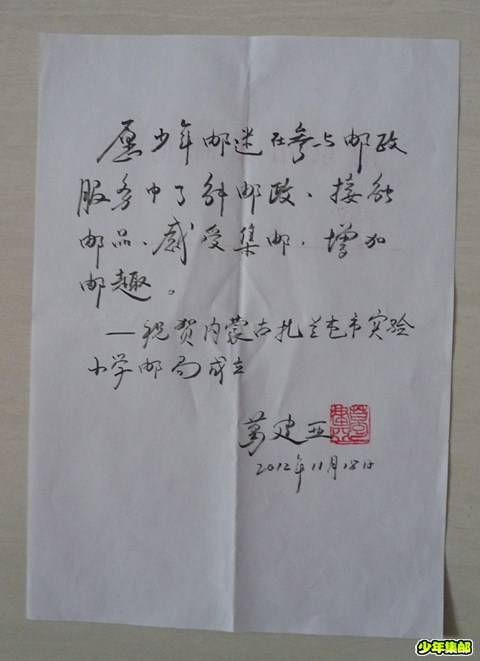 愿少年邮迷在参与邮政
服务中了解邮政、接触
邮品、感受集邮、增加
邮趣。
——祝贺内蒙古扎兰屯市实验
小学邮局成立
葛建亚
2012年11月18日
少年集邮